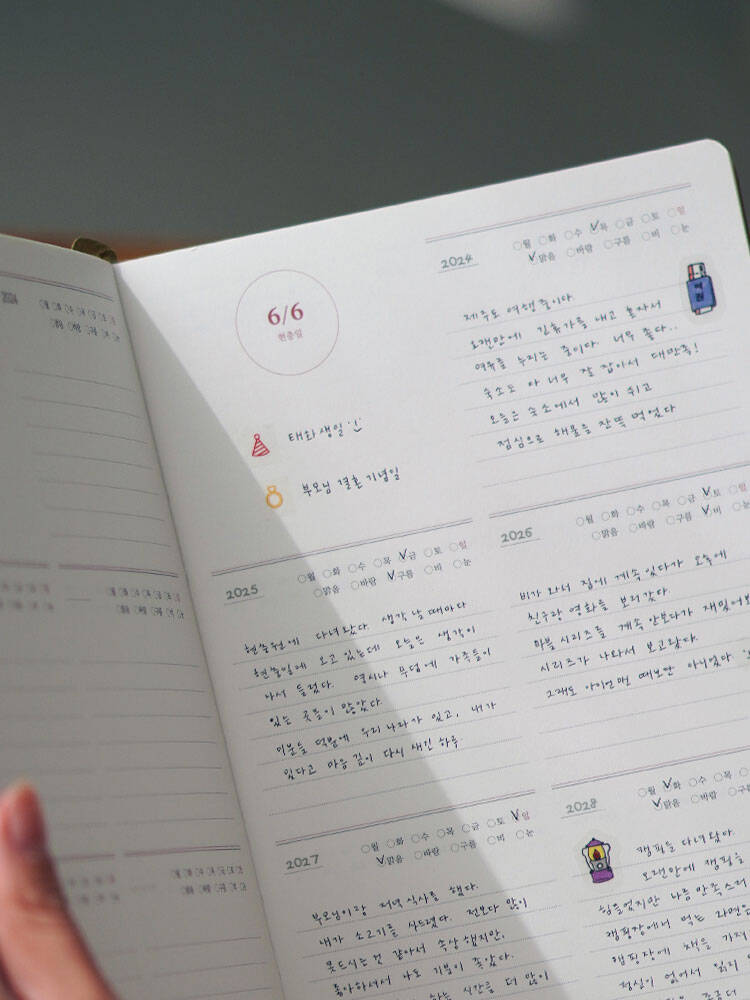 6/6
현충일
태화 생일
부모님 결혼 기념일
2024
월 화 수 목 금 토 일
맑음 바람 구름 비 눈
제주도 여행 중이다.
오랜만에 긴 휴가를 내고 혼자서
여유를 누리는 중이다. 너무 좋다..
숙소도 아 너무 잘 잡아서 대만족!
오늘은 숙소에서 많이 쉬고
점심으로 해물을 잔뜩 먹었다
2025
월 화 수 목 금 토 일
맑음 바람 구름 비 눈
현충원에 다녀왔다. 생각날 때마다
현충일에 오고 있는데 오늘은 생각이
나서 들렀다. 역시나 무덤에 가족들이
있는 곳들이 많았다.
이분들 덕분에 우리나라가 있고, 내가
있다고 마음 깊이 다시 새긴 하루.
2026
월 화 수 목 금 토 일
맑음 바람 구름 비 눈
비가 와서 집에 계속 있다가 오후에
친구랑 영화를 보러갔다.
마블 시리즈를 계속 안보다가 재밌어보
시리즈가 나와서 보고왔다.
그래도 아이언맨 때보단 아니었다
2027
월 화 수 목 금 토 일
맑음 바람 구름 비 눈
부모님이랑 저녁 식사를 했다.
내가 소고기를 사드렸다. 전보다 많이
못드시는 것 같아서 속상했지만,
좋아하셔서 나도 기분이 좋았다.
하는 시간을 더 많이
2028
월 화 수 목
맑음 바람 구름
캠핑을 다녀왔다.
오랜만에 캠핑을
힘들었지만 나름 만족스러
캠핑장에서 먹는 라면은
캠핑장에 책을 가져
정신이 없어서 읽지